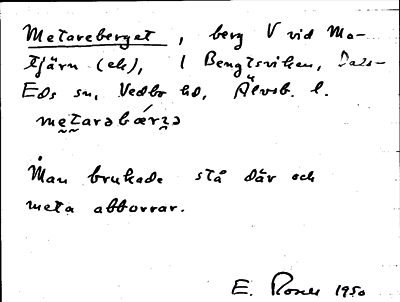 Metareberget, berg V vid Ma-
tjärn (ek), i Bengtsviken, Dals-
Eds sn, Vedbo hd, Älvsb. l.
me̬t̬arəbárʒə
Man brukade stå där och
meta abborrar.
E. Rosell 1950